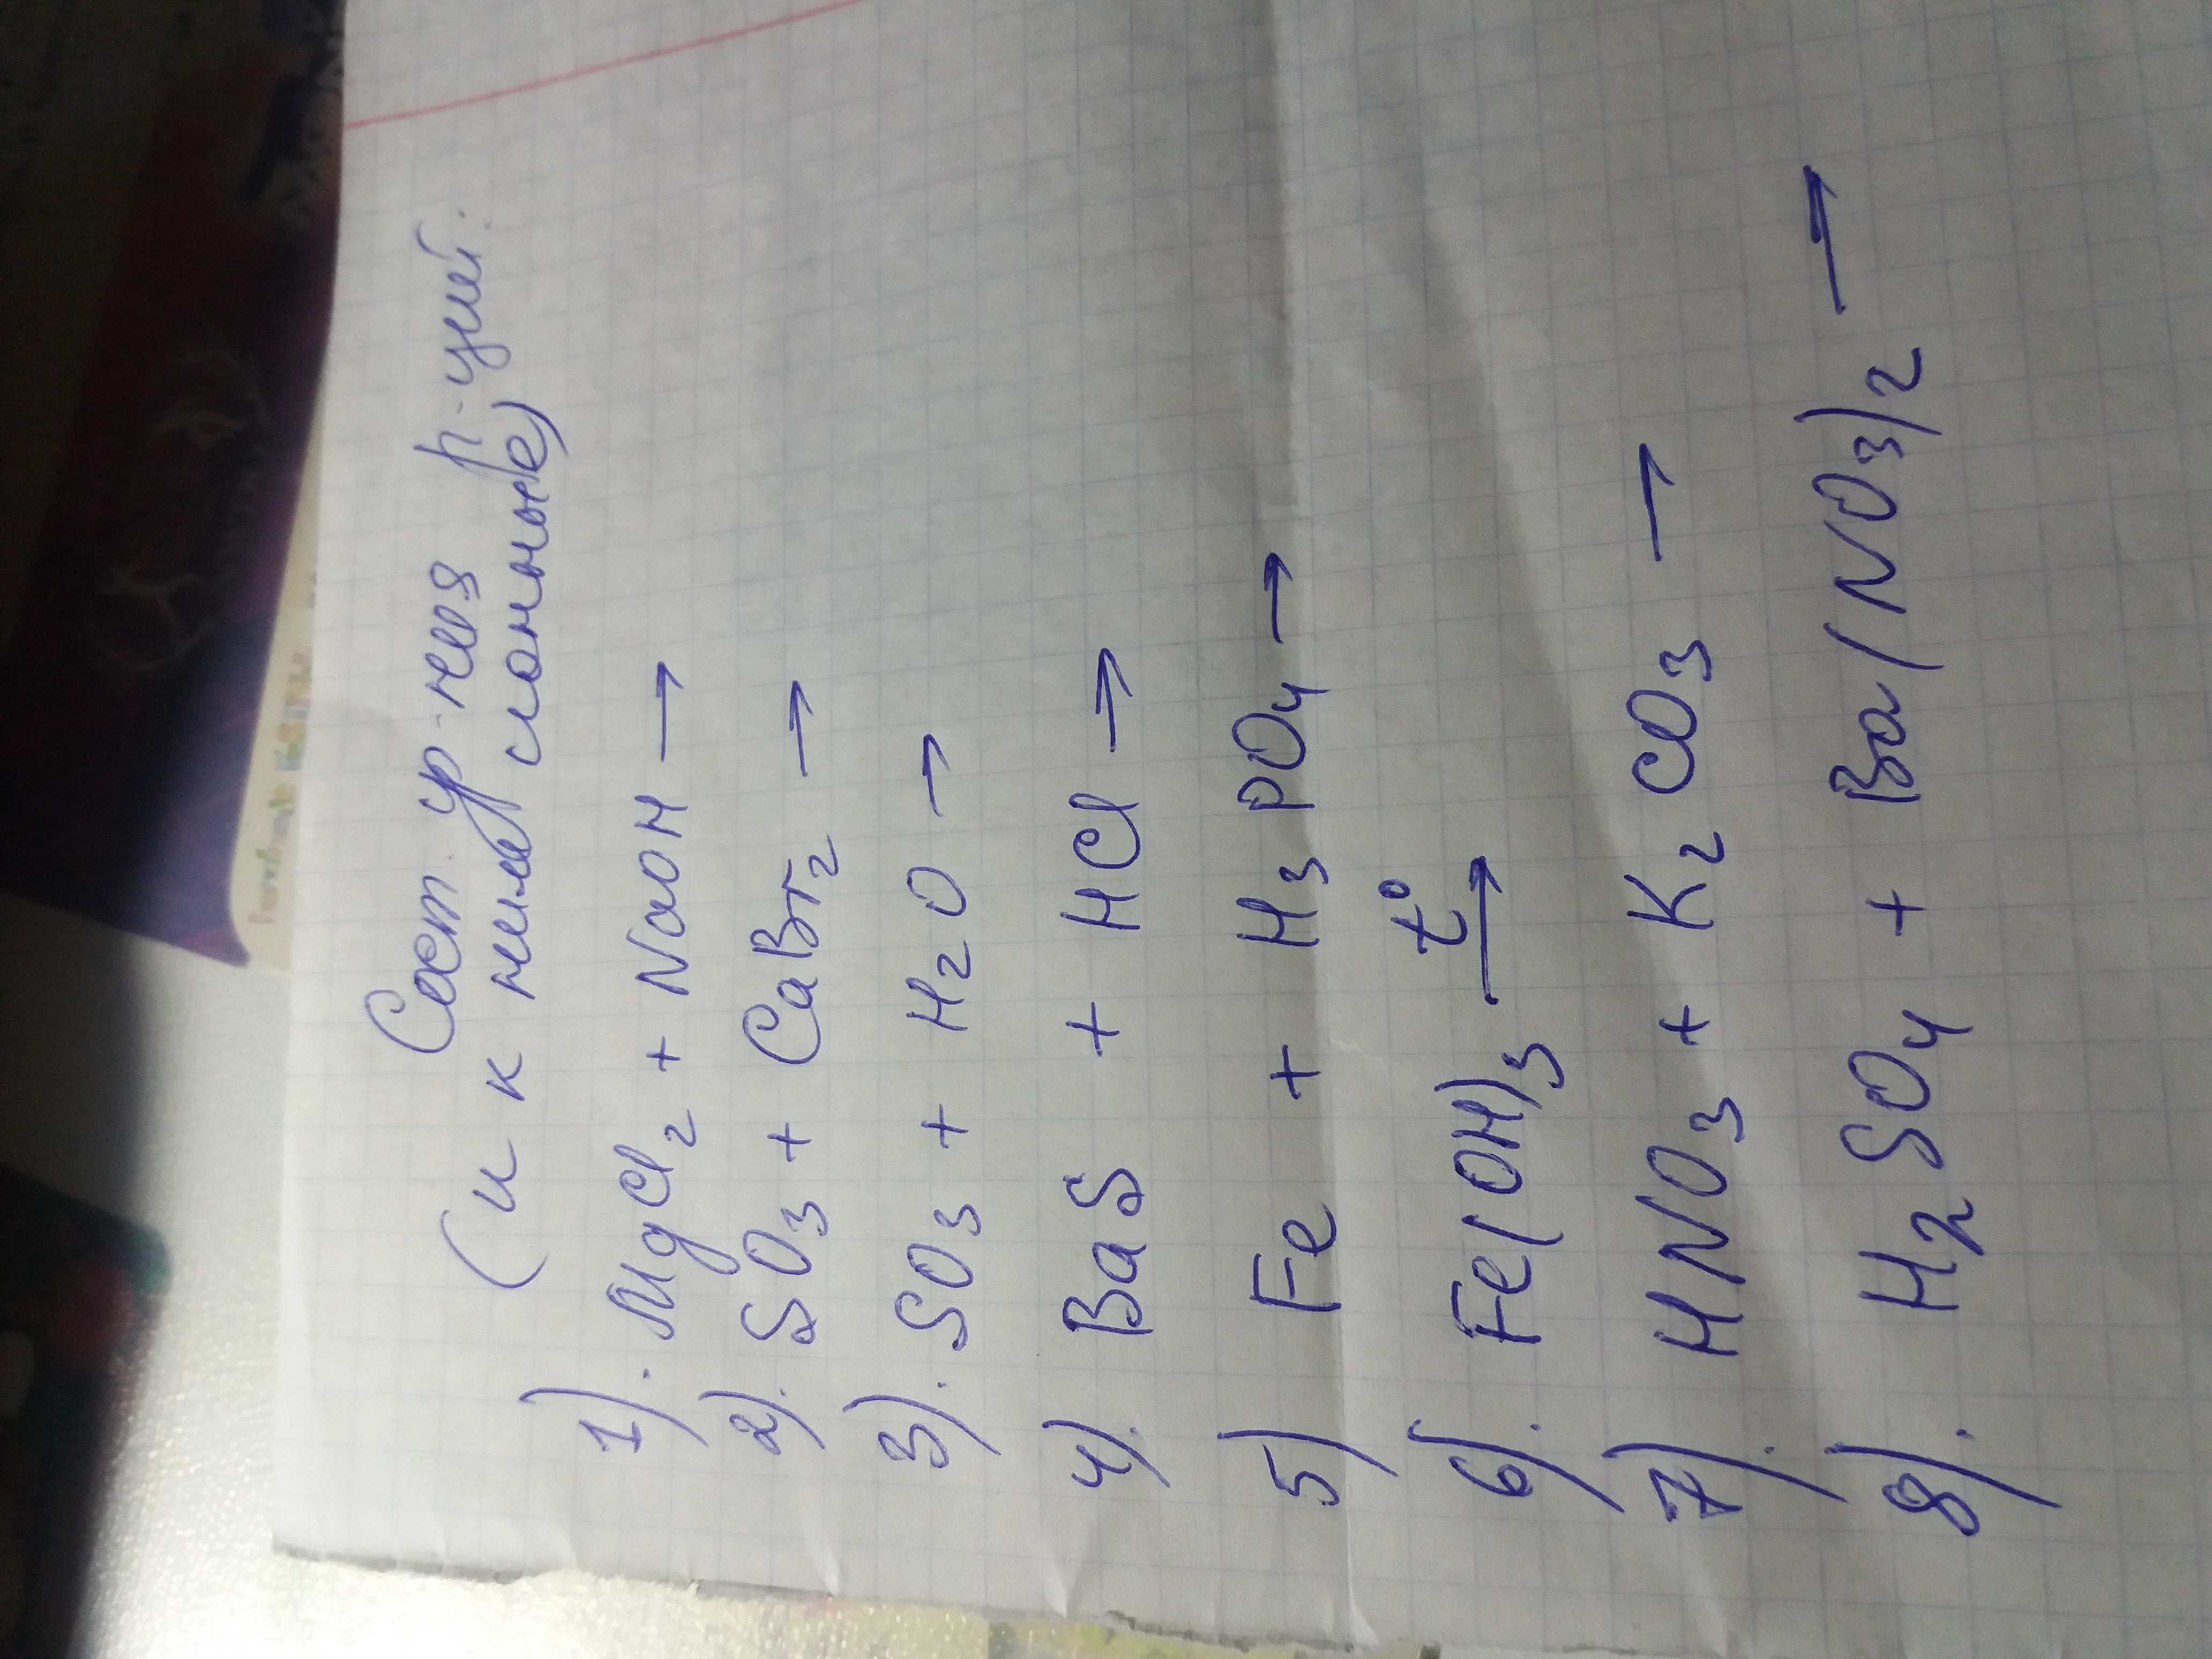 Сост. ур-ния р-ций:
(и к ним ионные)
1). MgCl2 + NaOH →
2). SO3 + CaBr2 →
3). SO3 + H2O →
4). BaS + HCl →
5) Fe + H3PO4 →
6). Fe(OH)3 t° →
7). HNO3 + K2CO3 →
8). H2SO4 + Ba(NO3)2 →